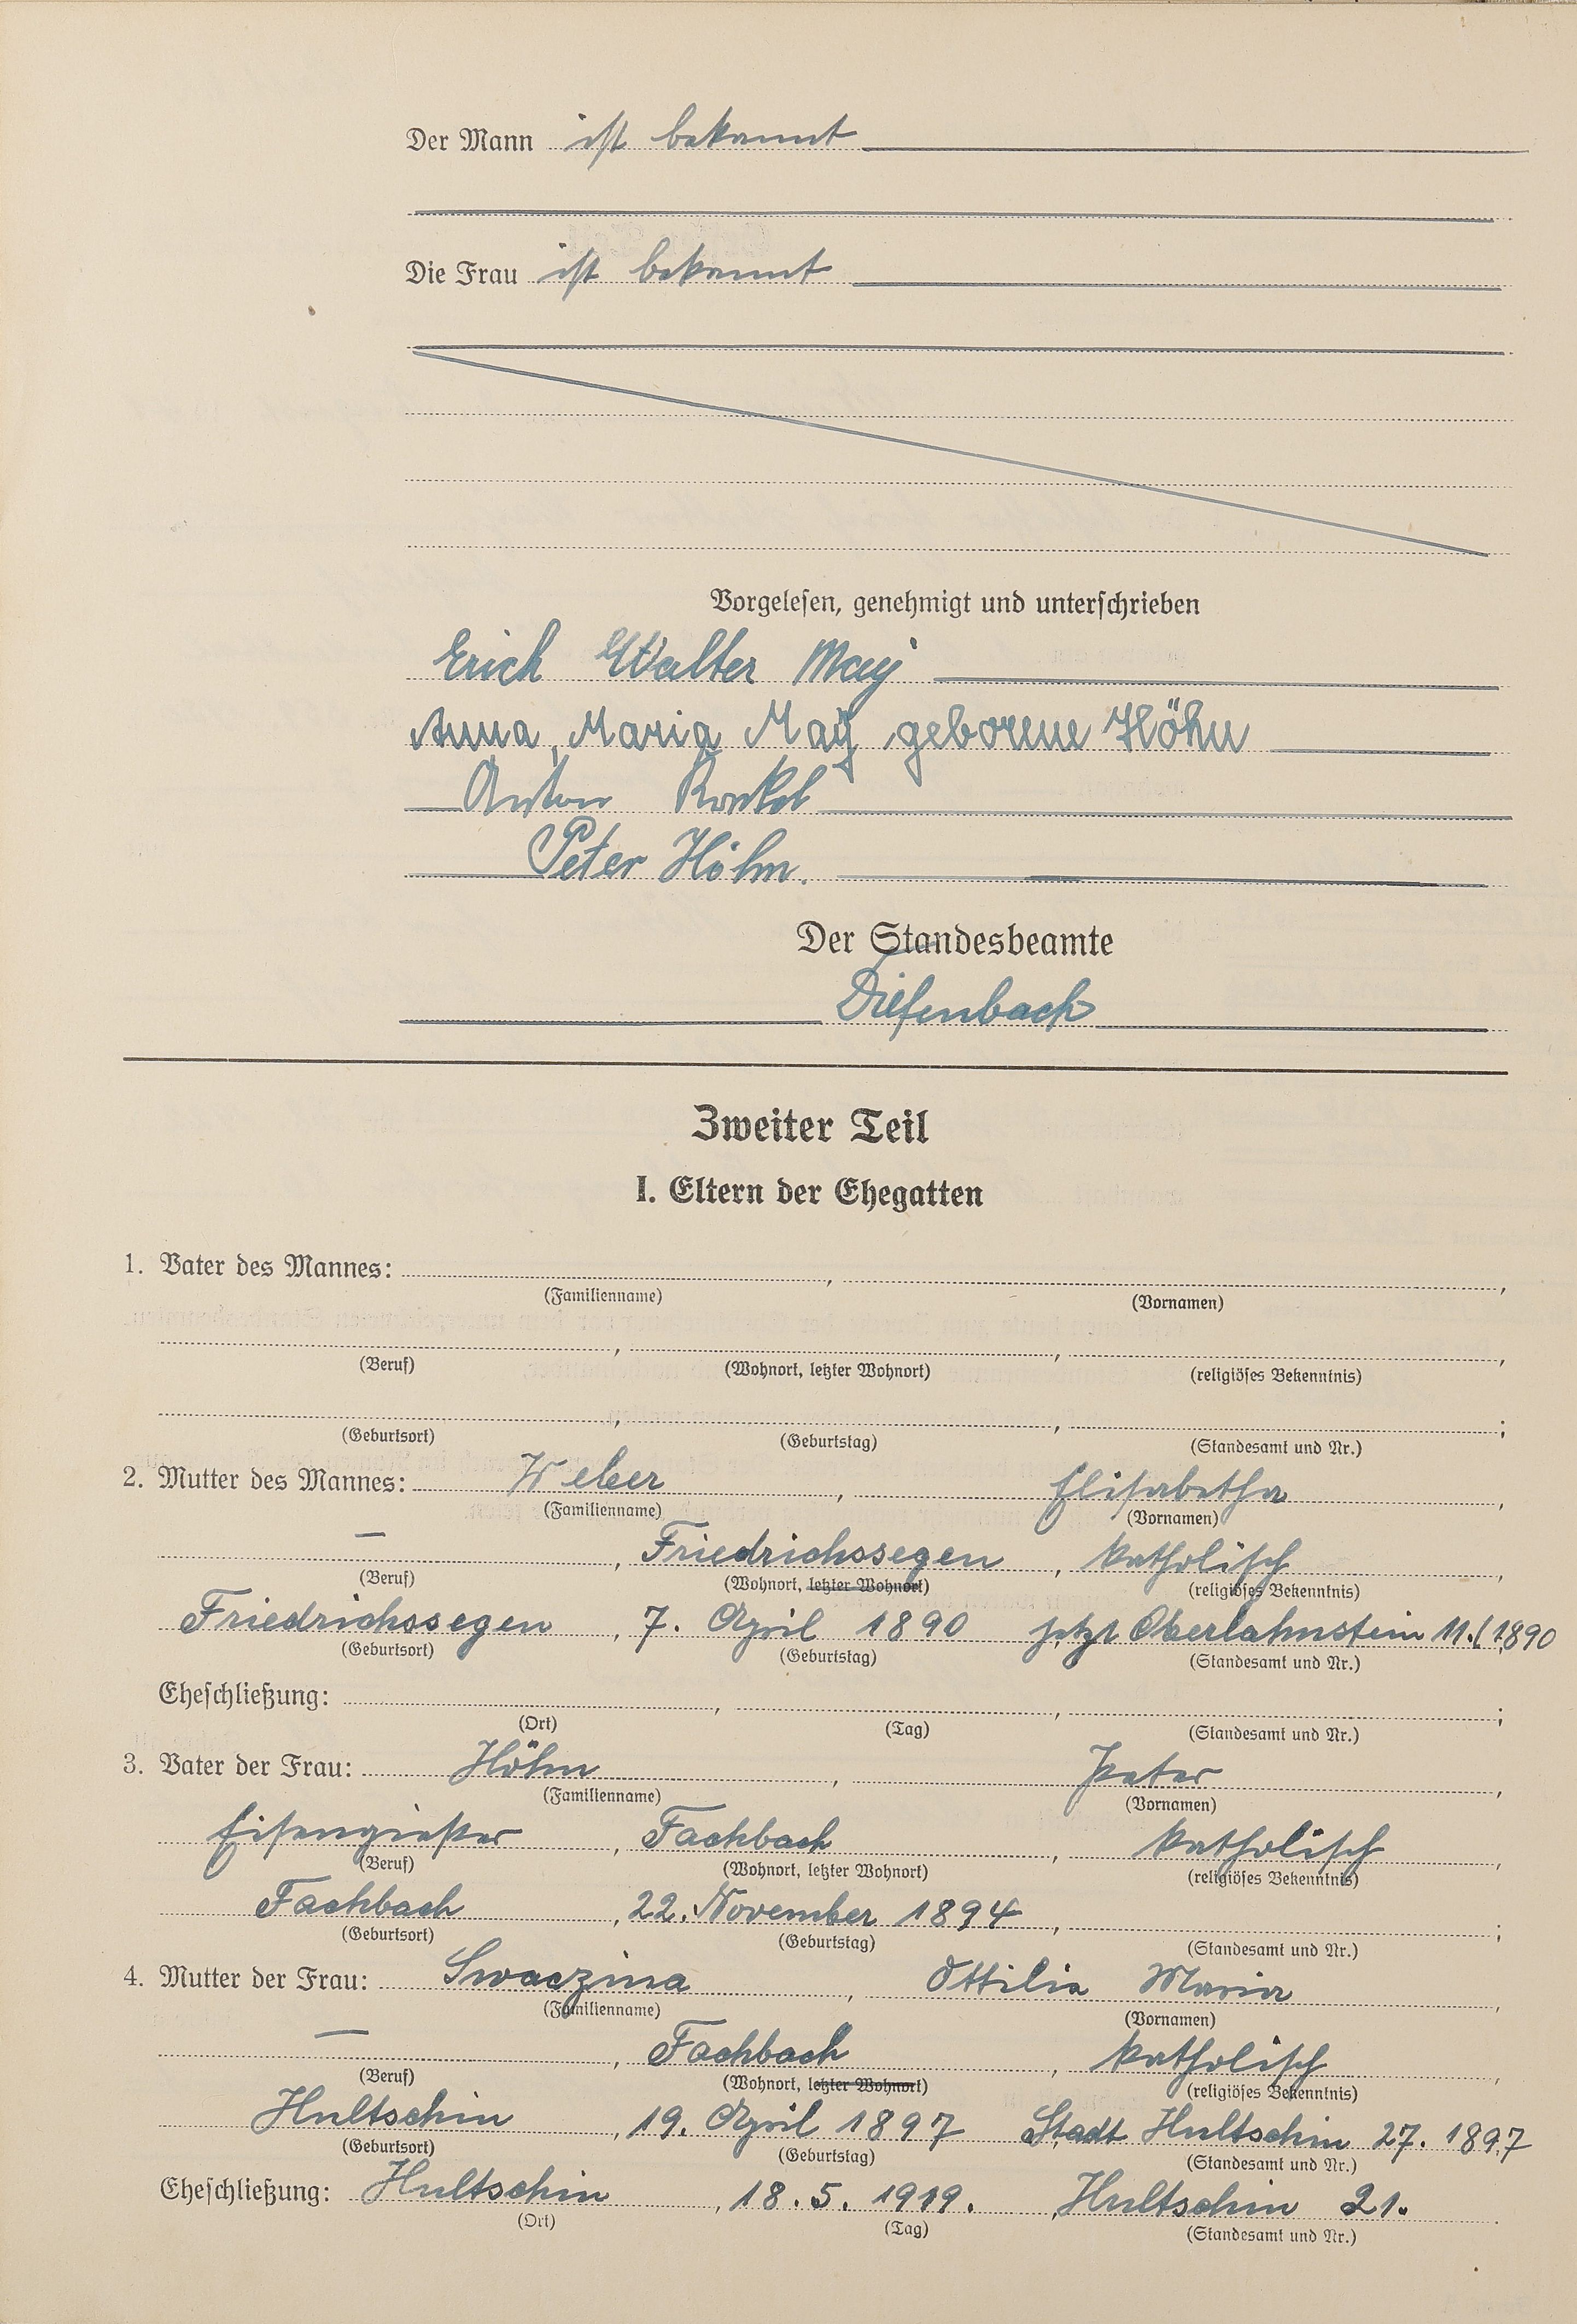 Der Mann ist bekannt
Die Frau ist bekannt
Vorgelesen, genehmigt und unterschrieben
Erich Walter May
Anna, Maria Maÿ geborene Höhn
Anton
Peter Höhn.
Der Standesbeamte
Diefenbach
Zweiter Teil
I. Eltern der Ehegatten
1. Vater des Mannes: , ,
(Familienname) (Vornamen)
, , ,
(Beruf) (Wohnort, letzter Wohnort) (religiöses Bekenntnis)
, , ;
(Geburtsort) (Geburtstag) (Standesamt und Nr.)
2. Mutter des Mannes: Weber , Elisabetha ,
(Familienname) (Vornamen)
— , Friedrichssegen , katholisch ,
(Beruf) (Wohnort, letzter Wohnort) (religiöses Bekenntnis)
Friedrichssegen , 7. April 1890 jetzt Oberlahnstein 11./1890
(Geburtsort) (Geburtstag) (Standesamt und Nr.)
Eheschließung: , , ;
(Ort) (Tag) (Standesamt und Nr.)
3. Vater der Frau: Höhn , Peter ,
(Familienname) (Vornamen)
Eisengießer , Fachbach , katholisch ,
(Beruf) (Wohnort, letzter Wohnort) (religiöses Bekenntnis)
Fachbach , 22. November 1894 , ;
(Geburtsort) (Geburtstag) (Standesamt und Nr.)
4. Mutter der Frau: Swaczina , Ottilia Maria ,
(Familienname) (Vornamen)
— , Fachbach , katholisch ,
(Beruf) (Wohnort, letzter Wohnort) (religiöses Bekenntnis)
Hultschin , 19. April 1897 Stadt Hultschin 27. 1897
(Geburtsort) (Geburtstag) (Standesamt und Nr.)
Eheschließung: Hultschin , 18.5.1919. , Hultschin 21.
(Ort) (Tag) (Standesamt und Nr.)